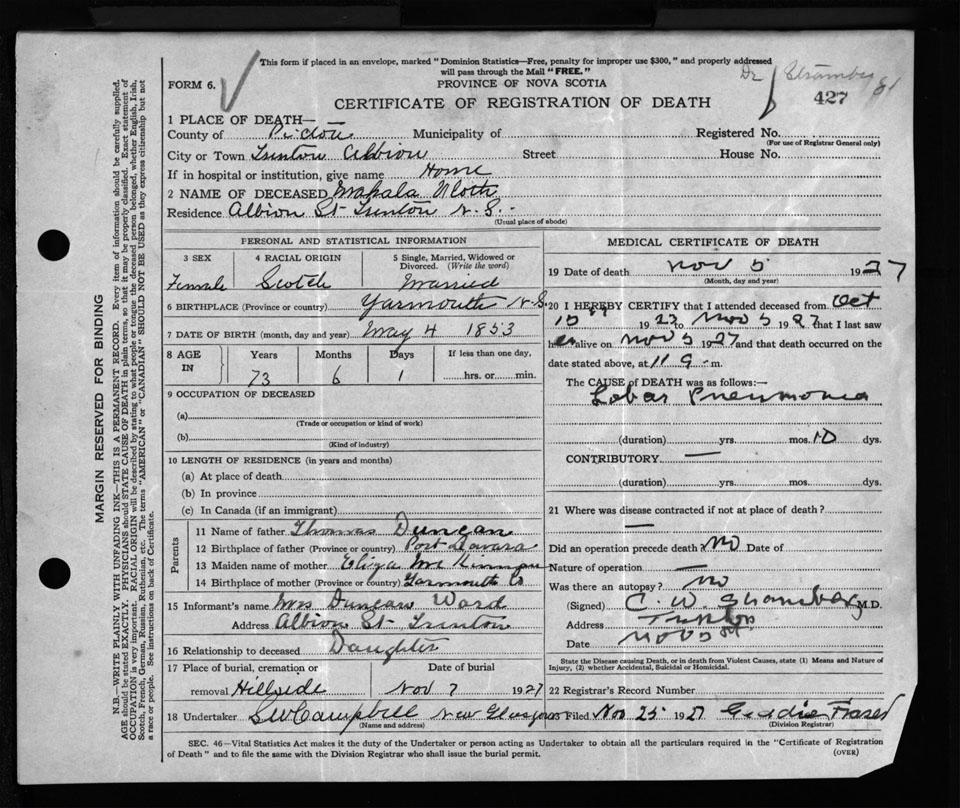 This form if placed in an envelope, marked "Dominion Statistics—Free, penalty for improper use $300," and properly addressed
will pass through the Mail "FREE."
FORM 6.
PROVINCE OF NOVA SCOTIA
Dr
427
CERTIFICATE OF REGISTRATION OF DEATH
1 PLACE OF DEATH—
County of Pictou Municipality of Registered No.
(For use of Registrar General only)
City or Town Trenton Albion Street House No.
If in hospital or institution, give name Home
2 NAME OF DECEASED
Residence Albion St Trenton N.S.
(Usual place of abode)
PERSONAL AND STATISTICAL INFORMATION
3 SEX
4 RACIAL ORIGIN
5 Single, Married, Widowed or Divorced. (Write the word)
Female Scotch Married
6 BIRTHPLACE (Province or country) Yarmouth N.S.
7 DATE OF BIRTH (month, day and year) May 4 1853
8 AGE IN
Years Months Days If less than one day,
73 6 1 hrs. or min.
9 OCCUPATION OF DECEASED
(a)
(Trade or occupation or kind of work)
(b)
(Kind of industry)
10 LENGTH OF RESIDENCE (in years and months)
(a) At place of death
(b) In province
(c) In Canada (if an immigrant)
Parents
11 Name of father Thomas Duncan
12 Birthplace of father (Province or country) Port
13 Maiden name of mother Eliza
14 Birthplace of mother (Province or country) Yarmouth Co
15 Informant's name Mrs Duncan Ward
Address Albion St Trenton
16 Relationship to deceased Daughter
17 Place of burial, cremation or Date of burial
removal Hillside Nov 7 1927
18 Undertaker S W Campbell New Glasgow
(Name and address)
MEDICAL CERTIFICATE OF DEATH
19 Date of death Nov 5 1927
(Month, day and year)
20 I HEREBY CERTIFY that I attended deceased from Oct
1927 to Nov 5 1927 that I last saw
her alive on Nov 5 1927 and that death occurred on the
date stated above, at 11 m.
The CAUSE of DEATH was as follows:—
Lobar Pneumonia
(duration) yrs. mos. 10 dys.
CONTRIBUTORY —
(duration) yrs. mos. dys.
21 Where was disease contracted if not at place of death?
—
Did an operation precede death No Date of
Nature of operation —
Was there an autopsy? No
(Signed) C. W. M.D.
Address Trenton
Date Nov 5
State the Disease causing Death, or in death from Violent Causes, state (1) Means and Nature of
Injury, (2) whether Accidental, Suicidal or Homicidal.
22 Registrar's Record Number
Filed Nov 25 1927 Fraser
(Division Registrar)
SEC. 46—Vital Statistics Act makes it the duty of the Undertaker or person acting as Undertaker to obtain all the particulars required in the "Certificate of Registration
of Death" and to file the same with the Division Registrar who shall issue the burial permit.
(OVER)
MARGIN RESERVED FOR BINDING
N.B.—WRITE PLAINLY WITH UNFADING INK—THIS IS A PERMANENT RECORD. Every item of information should be carefully supplied.
AGE should be stated EXACTLY. PHYSICIANS should STATE CAUSE OF DEATH in plain terms, so that it may be properly classified. Exact statement of
OCCUPATION is very important. RACIAL ORIGIN will be described by stating to what people or tongue the deceased person belonged, whether English, Irish,
Scotch, French, German, Russian, Ruthenian, etc. The terms "AMERICAN" or "CANADIAN" SHOULD NOT BE USED as they express citizenship but not
a race or people. See instructions on back of Certificate.